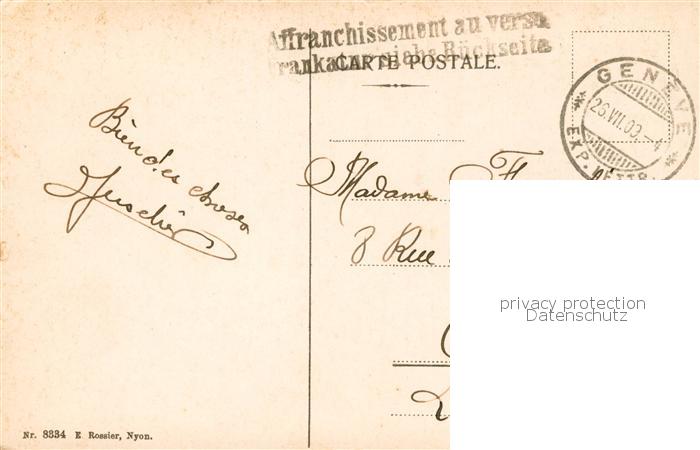 Affranchissement au verso
Frankatur siehe Rückseite
CARTE POSTALE.
GENÈVE
26.VII.09.-4
EXP. LETTR.
Bien des choses
Madame
8 Rue
privacy protection
Datenschutz
Nr. 8334 E Rossier, Nyon.